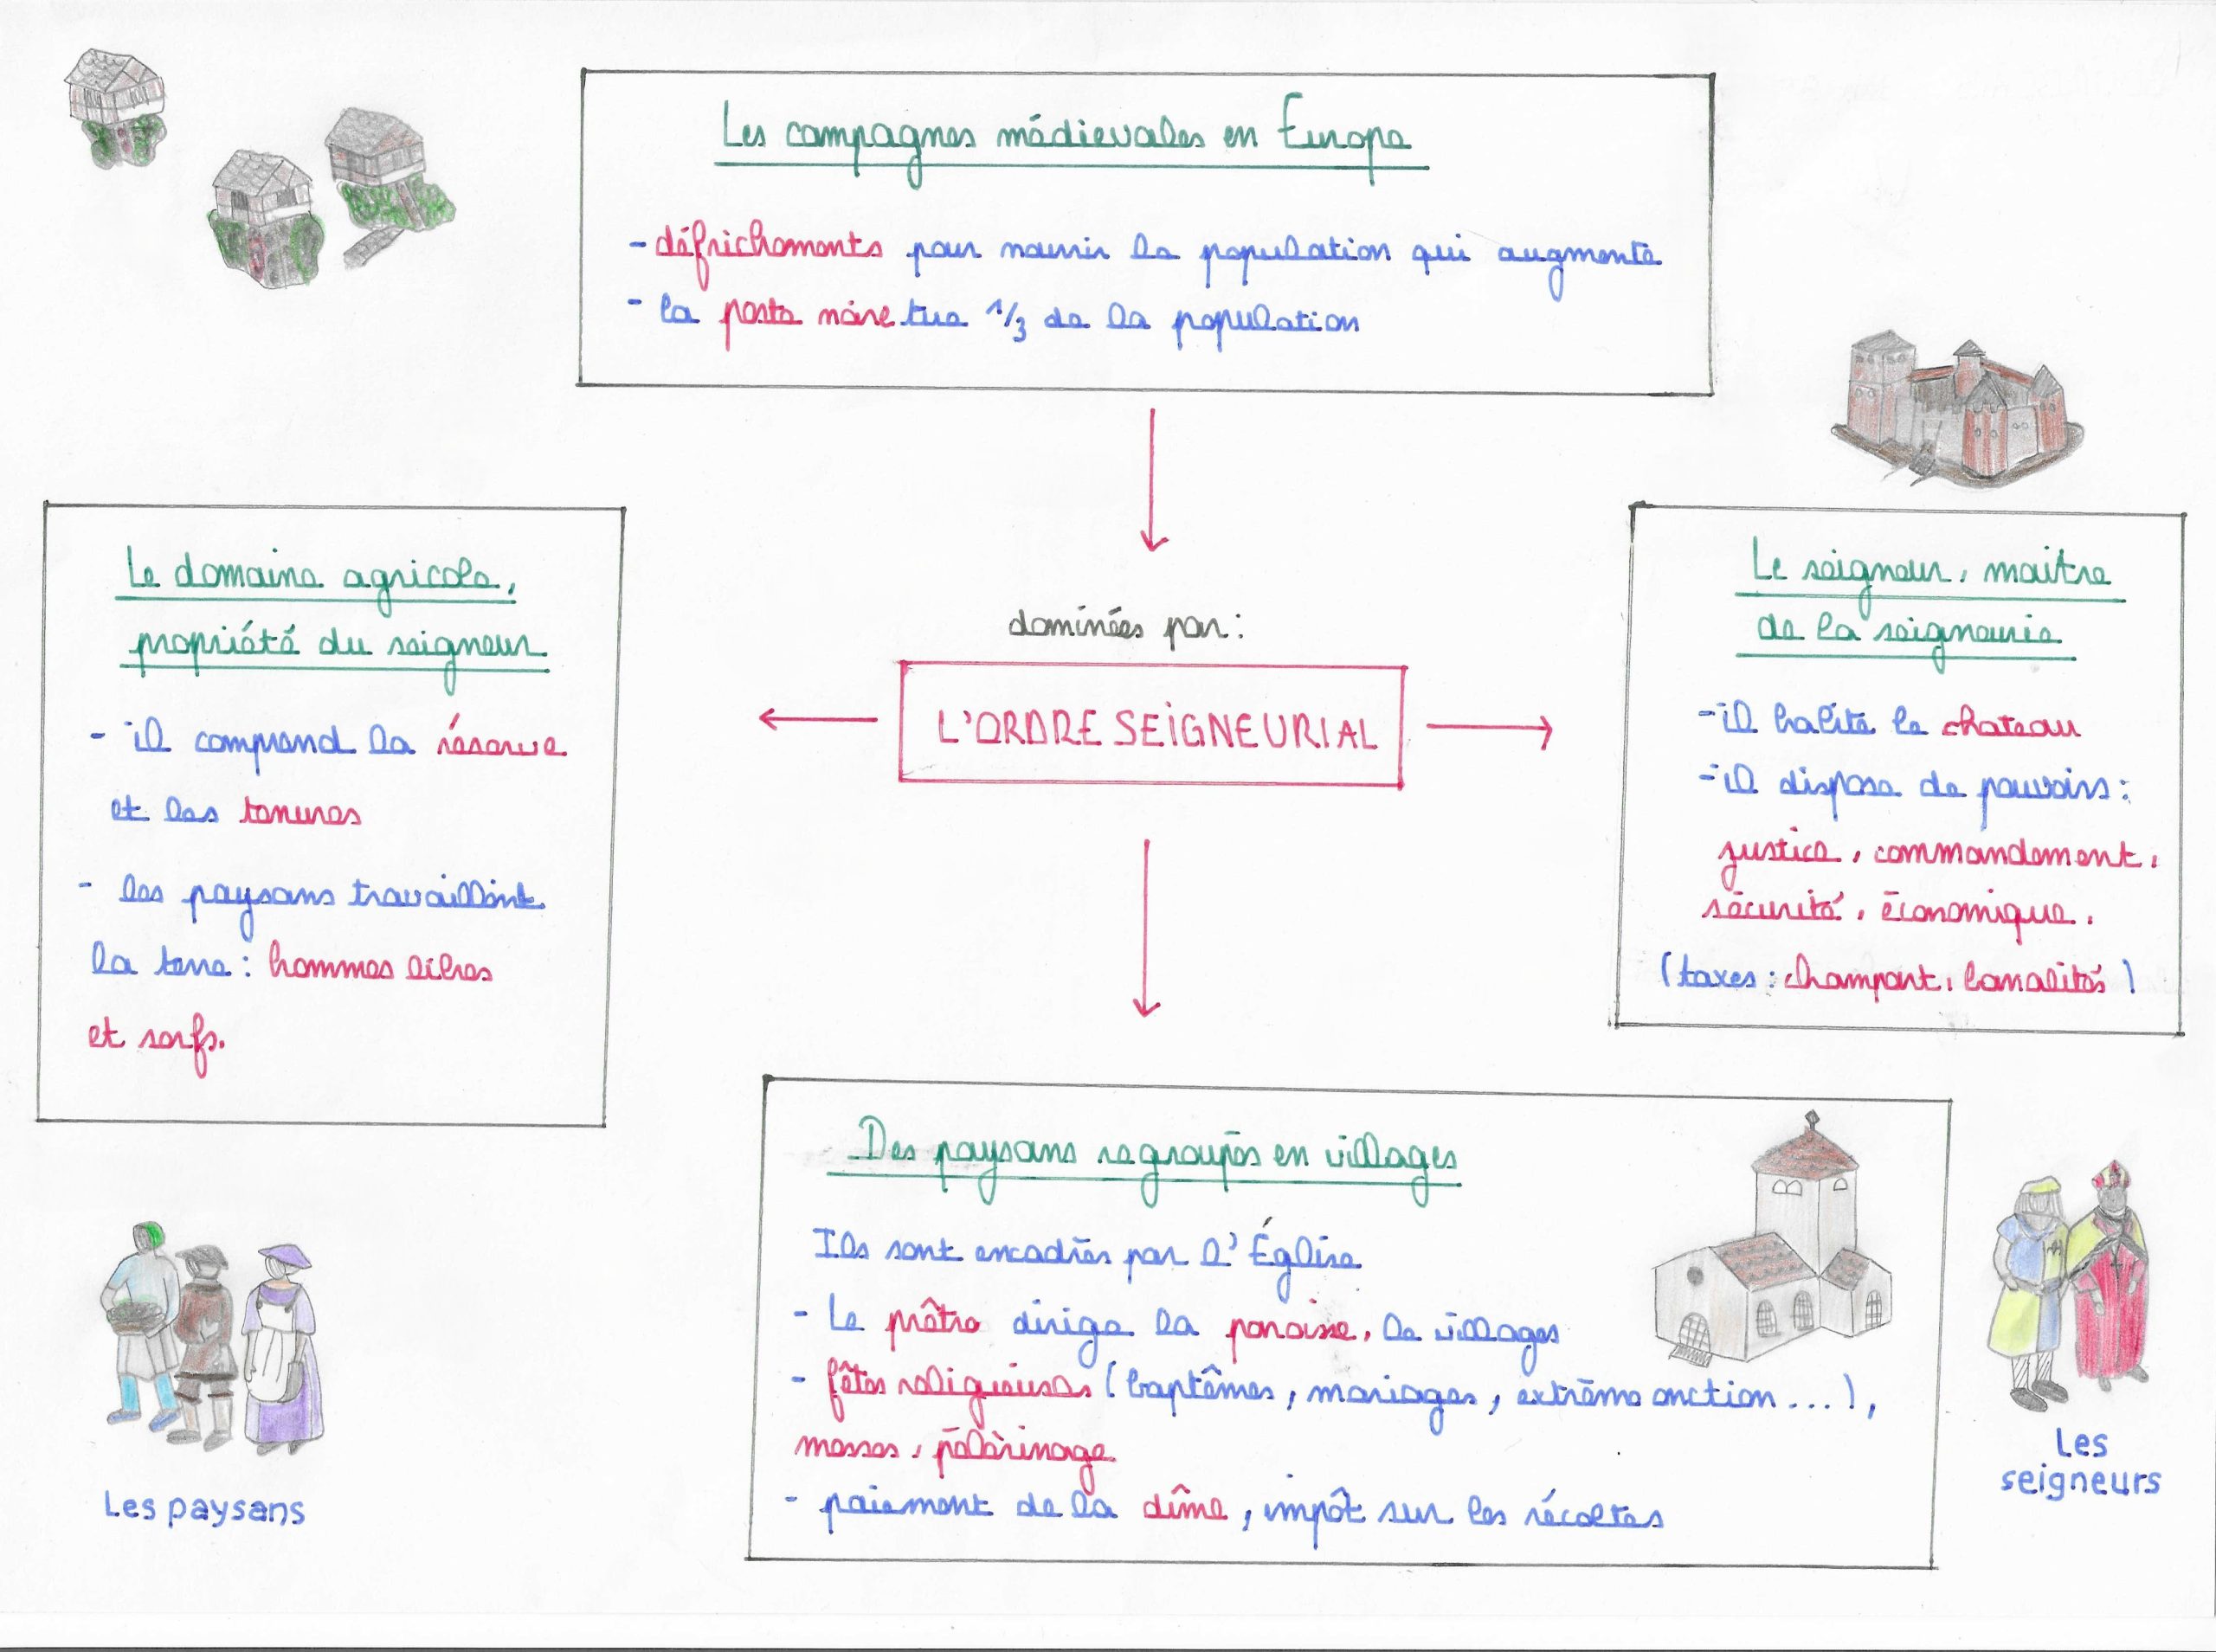 Les campagnes médievales en Europe
- défrichements pour nourrir la population qui augmente
- la peste noire tue 1/3 de la population
Le domaine agricole,
propriété du seigneur
- il comprend la réserve
et les tenures
- les paysans travaillent
la terre : hommes libres
et serfs.
dominées par :
L'ORDRE SEIGNEURIAL
Le seigneur, maitre
de la seigneurie
- il habite le chateau
- il dispose de pouvoirs :
justice, commandement,
sécurité, économique.
(taxes : champart, banalités)
Des paysans regroupés en villages
Ils sont encadrés par l'Église
- Le prêtre dirige la paroisse, le villages
- fêtes religieuses (baptêmes, mariages, extrême onction ...),
messes, pélèrinage
- paiement de la dîme, impôt sur les récoltes
Les paysans
Les
seigneurs